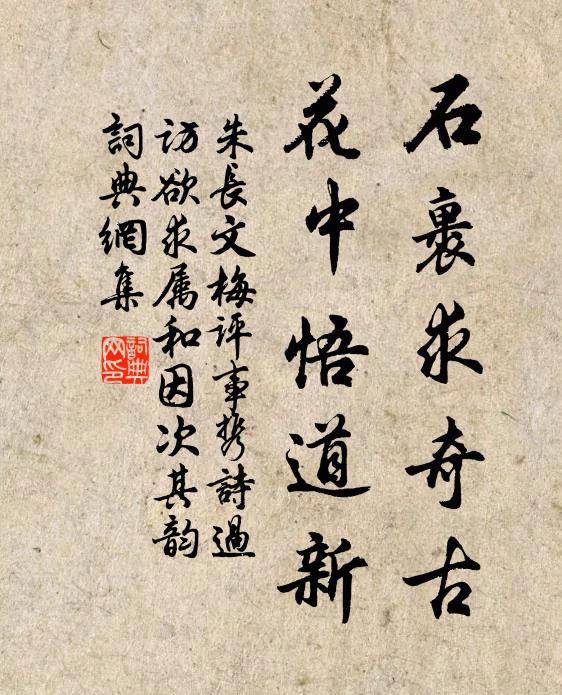 石裏求奇古
花中悟道新
朱長文梅評事携詩過
訪欲求属和因次其韵
詞典網集
詞典
网印